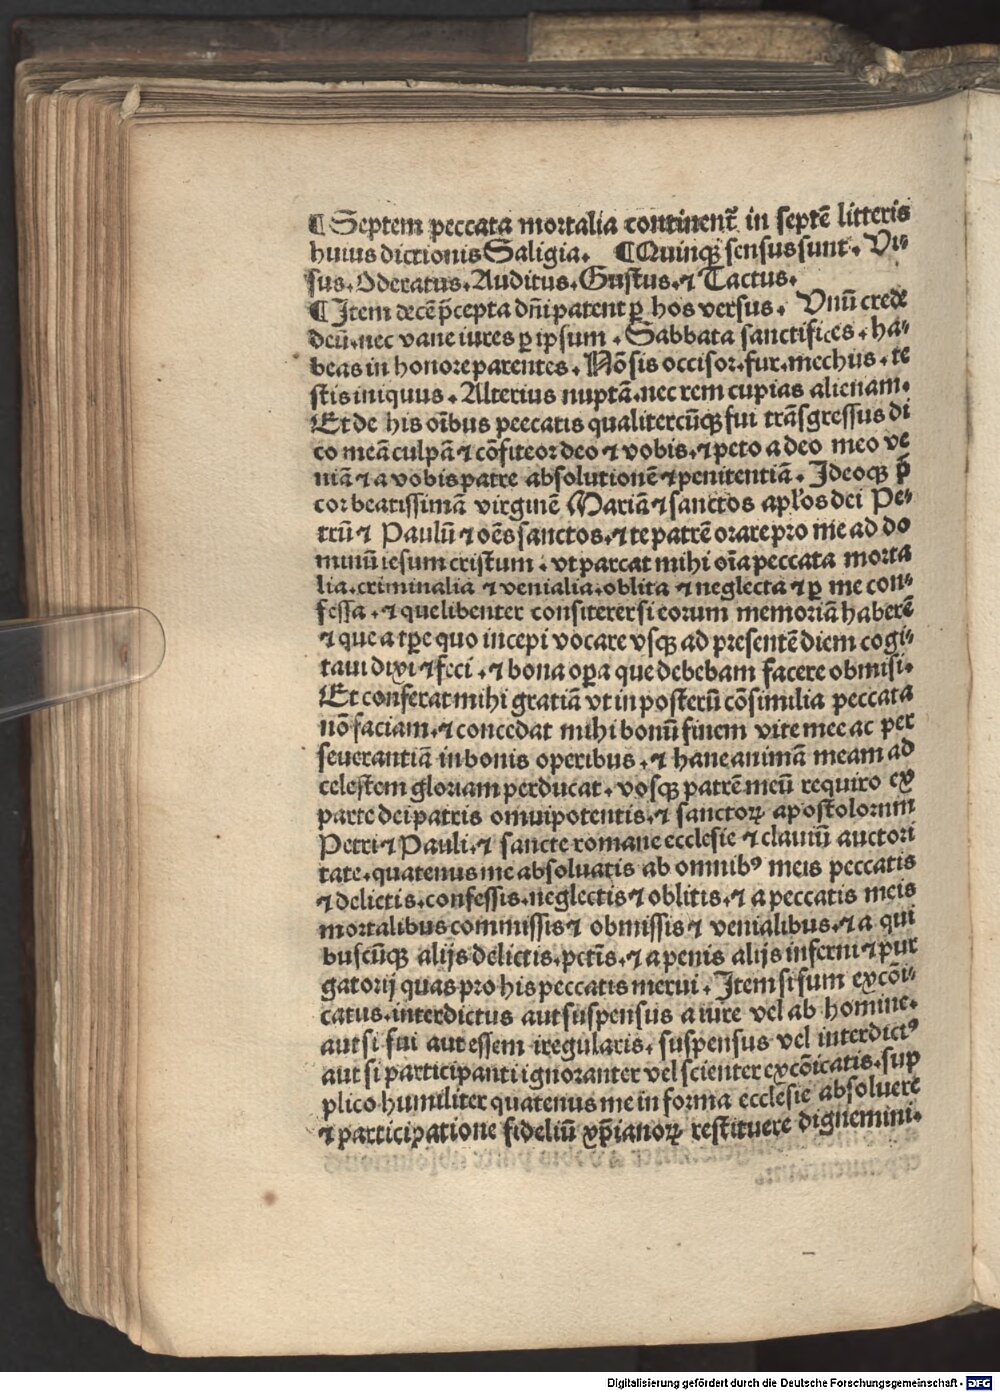 ¶ Septem peccata mortalia continent᷑ in septē litteris
huius dictionis Saligia. ¶ Quinqꝫ sensus sunt. Vi⸗
sus. Odoratus. Auditus. Gustus. ⁊ Tactus.
¶ Item decē p̄cepta dn̄i patent ꝑ hos versus. Vnū crede
deū. nec vane iures ꝑ ipsum. Sabbata sanctifices. ha⸗
beas in honore parentes. Nō sis occisor. fur. mechus. te
stis iniquus. Alterius nuptā. nec rem cupias alienam.
Et de his oībus peccatis qualitercūqꝫ fui trāsgressus di
co meā culpā ⁊ cōfiteor deo ⁊ vobis. ⁊ peto a deo meo ve
niā ⁊ a vobis patre absolutionē ⁊ penitentiā. Ideoqꝫ p̄
cor beatissimā virginē Mariā ⁊ sanctos apl'os dei Pe⸗
trū ⁊ Paulū ⁊ oēs sanctos. ⁊ te patrē orare pro me ad do
minū iesum cristum. vt parcat mihi oīa peccata morta
lia. criminalia ⁊ venialia. oblita ⁊ neglecta ⁊ ꝑ me con⸗
fessa. ⁊ que libenter confiterer si eorum memoriā haberē
⁊ que a tꝑe quo incepi vocare vsqꝫ ad presentē diem cogi⸗
taui dixi ⁊ feci. ⁊ bona oꝑa que debebam facere obmisi.
Et conferat mihi gratiā vt in posterū cōsimilia peccata
nō faciam. ⁊ concedat mihi bonū finem vite mee ac per
seuerantiā in bonis operibus. ⁊ hanc animā meam ad
celestem gloriam perducat. vosqꝫ patrē meū requiro ex
parte dei patris omnipotentis. ⁊ sanctoꝝ apostolorum
Petri ⁊ Pauli. ⁊ sancte romane ecclesie ⁊ clauiū auctori
tate. quatenus me absoluatis ab omnibꝰ meis peccatis
⁊ delictis. confessis. neglectis ⁊ oblitis. ⁊ a peccatis meis
mortalibus commissis ⁊ obmissis ⁊ venialibus. ⁊ a qui
buscūqꝫ alijs delictis. pctīs. ⁊ a penis alijs inferni ⁊ pur
gatorij quas pro his peccatis merui. Item si sum excōi⸗
catus. interdictus aut suspensus a iure vel ab homine.
aut si fui aut essem iregularis. suspensus vel interdictꝰ
aut si participanti ignoranter vel scienter excōicatis. sup
plico humiliter quatenus me in forma ecclesie absoluere
⁊ participatione fideliū xp̄ianoꝝ restituere dignemini.
Digitalisierung gefördert durch die Deutsche Forschungsgemeinschaft - DFG